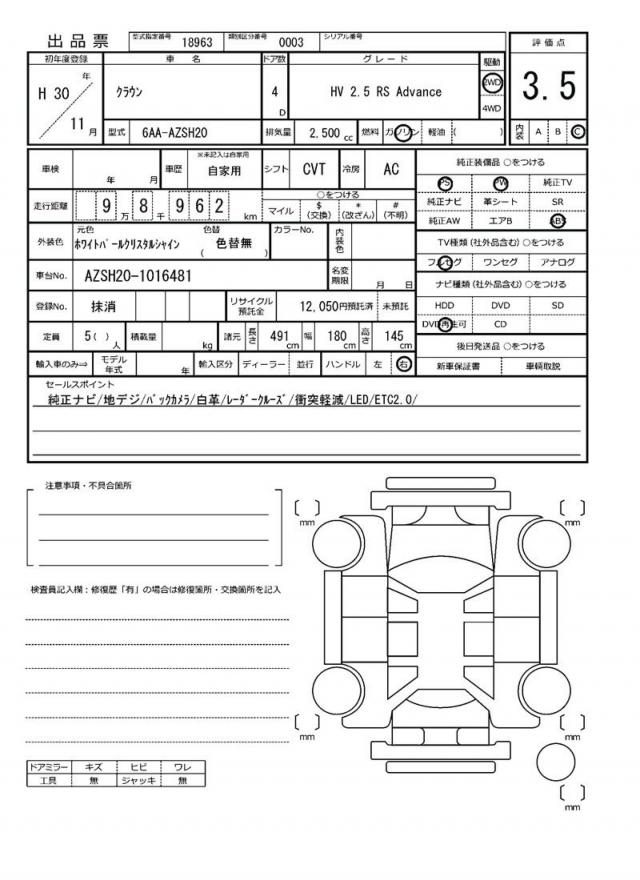 出品票 型式指定番号 18963 類別区分番号 0003 シリアル番号
初年度登録 車名 ドア数 グレード 駆動 評価点
H 30 年 11 月 クラウン 4 D HV 2.5 RS Advance 2WD 4WD 3.5
型式 6AA-AZSH20 排気量 2,500 cc 燃料 ガソリン 軽油 ( ) 内装 A B C
車検 年 月 車歴 ※未記入は自家用 自家用 シフト CVT 冷房 AC 純正装備品 ○をつける
PS PW 純正TV
走行距離 9 万 8 千 9 6 2 km ○をつける
マイル $ (交換) * (改ざん) # (不明) 純正ナビ 革シート SR
純正AW エアB ABS
外装色 元色 ホワイトパールクリスタルシャイン 色替 ( 色替無 ) カラーNo. 内装色 TV種類 (社外品含む) ○をつける
フルセグ ワンセグ アナログ
車台No. AZSH20-1016481 名変期限 月 日 ナビ種類 (社外品含む) ○をつける
登録No. 抹消 リサイクル預託金 12,050円預託済 未預託 HDD DVD SD
DVD再生可 CD
定員 5( ) 人 積載量 kg 諸元 長さ 491 cm 幅 180 cm 高さ 145 cm 後日発送品 ○をつける
輸入車のみ⇒ モデル年式 年 輸入区分 ディーラー 並行 ハンドル 左 右 新車保証書 車輌取説
セールスポイント
純正ナビ/地デジ/バックカメラ/白革/レーダークルーズ/衝突軽減/LED/ETC2.0/
注意事項・不具合箇所
mm
mm
検査員記入欄：修復歴「有」の場合は修復箇所・交換箇所を記入
mm
mm
ドアミラー キズ ヒビ ワレ
工具 無 ジャッキ 無
mm